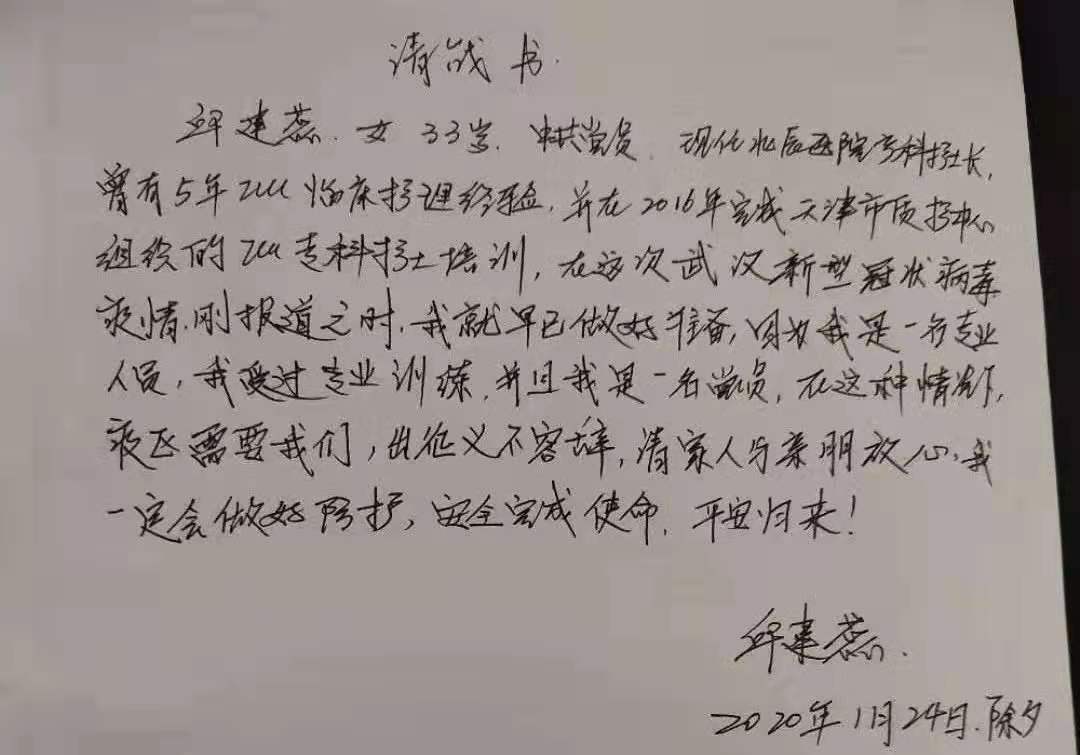 请战书.
邱建蕊.女 33岁.中共党员.现任北辰医院专科护士长,
曾有5年ICU临床护理经验,并在2016年完成天津市质控中心
组织的ICU专科护士培训,在这次武汉新型冠状病毒
疫情刚报道之时,我就早已做好准备,因为我是一名专业
人员,我受过专业训练,并且我是一名党员,在这种情况下,
疫区需要我们,出征义不容辞,请家人与亲朋放心,我
一定会做好防护,安全完成使命.平安归来!
邱建蕊.
2020年1月24日.除夕